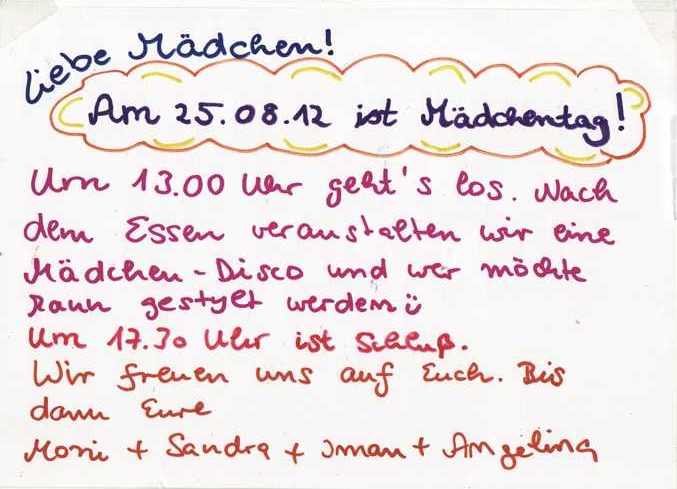 Liebe Mädchen!
Am 25.08.12 ist Mädchentag!
Um 13.00 Uhr geht's los. Nach
dem Essen veranstalten wir eine
Mädchen-Disco und wer möchte
kann gestylt werden ü
Um 17.30 Uhr ist Schluß.
Wir freuen uns auf Euch. Bis
dann Eure
Moni + Sandra + Iman + Angelina